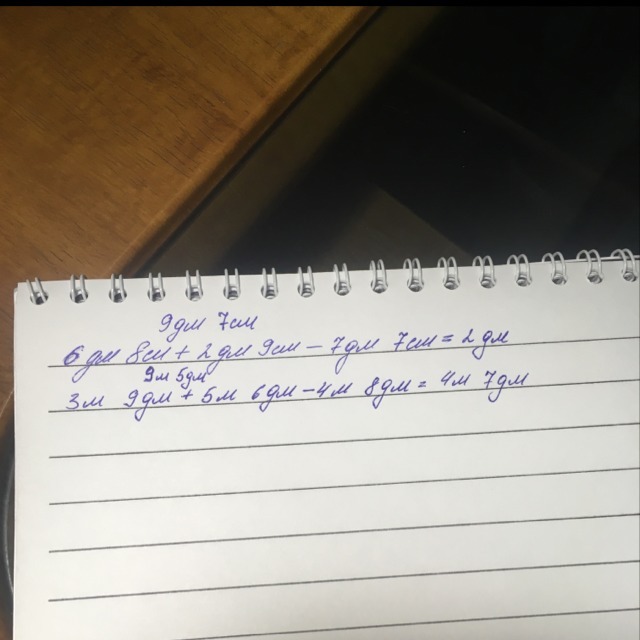 9дм 7см
6дм 8см + 2дм 9см - 7дм 7см = 2дм
9м 5дм
3м 9дм + 5м 6дм - 4м 8дм = 4м 7дм